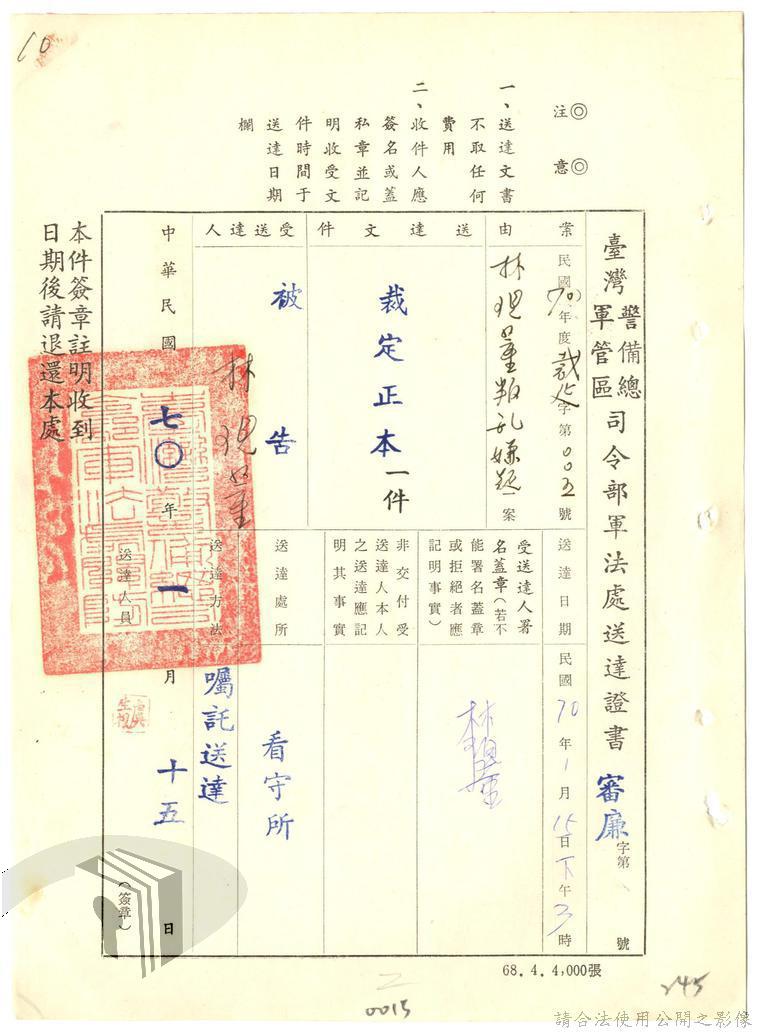 10
注意
一、送達文書
不取任何
費用
二、收件人應
簽名或蓋
私章並記
明收受文
件時間于
送達日期
欄
臺灣警備總軍管區司令部軍法處送達證書 審廉字第 號
案由
民國70年度裁字第00五號
林現量叛亂嫌疑一案
送達文件
裁定正本一件
受送達人
被告
林現量
送達日期
民國70年1月15日下午3時
受送達人署
名蓋章(若不
能署名蓋章
或拒絕者應
記明事實)
非交付受
送達人本人
之送達應記
明其事實
送達處所
看守所
送達方法
囑託送達
中華民國七〇年一月十五日
送達人員
(簽章)
本件簽章註明收到
日期後請退還本處
68.4.4,000張
245
0015
請合法使用公開之影像